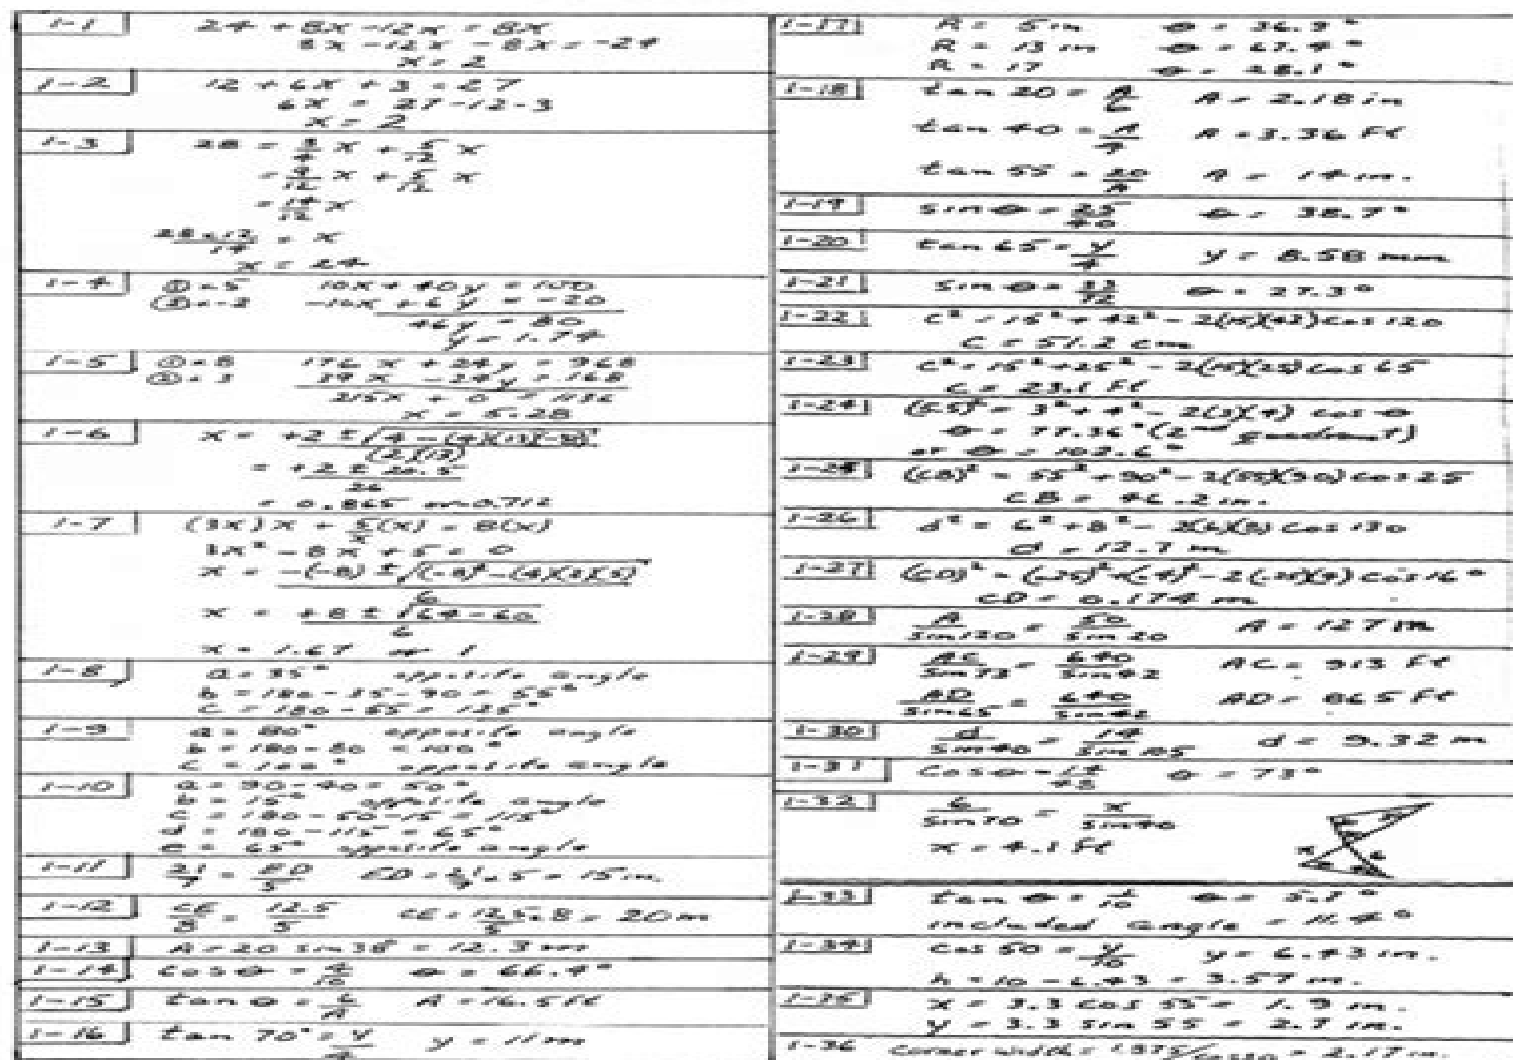 1-1 24 + 8x - 12x = 8x
8x - 12x - 8x = -24
x = 2
1-2 12 + 6x + 3 = 27
6x = 27 - 12 - 3
x = 2
1-3 28 = 3/4 x + 5/12 x
= 9/12 x + 5/12 x
= 14/12 x
28×12/14 = x
x = 24
1-4 ①×5 10x + 40y = 100
②×-2 -10x + 6y = -20
46y = 80
y = 1.74
1-5 ①×8 176x + 24y = 968
②×3 39x - 24y = 168
215x + 0 = 1136
x = 5.28
1-6 x = +2 ± √4 - (4)(13)(-8) / (2)(13)
= +2 ± 20.5 / 26
= 0.865 or -0.712
1-7 (3x)x + 5/x (x) = 8(x)
3x² - 8x + 5 = 0
x = -(-8) ± √(-8)² - (4)(3)(5) / 6
x = +8 ± √64 - 60 / 6
x = 1.67 or 1
1-8 a = 35° opposite angle
b = 180 - 35 - 90 = 55°
c = 180 - 55 = 125°
1-9 a = 80° opposite angle
b = 180 - 80 = 100°
c = 100° opposite angle
1-10 a = 90 - 40 = 50°
b = 15° opposite angle
c = 180 - 50 - 15 = 115°
d = 180 - 115 = 65°
e = 65° opposite angle
1-11 ED = 15 in.
1-12 CE/8 = 12.5/5 CE = 12.5/5 × 8 = 20 m
1-13 A = 20 sin 38° = 12.3 m
1-14 cos θ = 4/10 θ = 66.4°
1-15 tan θ = A = 16.5 ft
1-16 tan 70° = y/4 y = 11 m
1-17 R = 5 in θ = 36.9°
R = 13 in θ = 67.4°
R = 17 θ = 28.1°
1-18 tan 20 = A/6 A = 2.18 in
tan 40 = A/4 A = 3.36 ft
tan 55 = 20/A A = 14 in.
1-19 sin θ = 25/40 θ = 38.7°
1-20 tan 65 = y/4 y = 8.58 mm
1-21 sin θ = 33/72 θ = 27.3°
1-22 c² = 15² + 42² - 2(15)(42) cos 120
C = 51.2 cm
1-23 c² = 15² + 25² - 2(15)(25) cos 65
C = 23.1 ft
1-24 (5.5)² = 3² + 4² - 2(3)(4) cos θ
θ = 77.36° (2nd quadrant)
or θ = 102.6°
1-25 (CB)² = 55² + 90² - 2(55)(90) cos 25
CB = 46.2 in.
1-26 d² = 6² + 8² - 2(6)(8) cos 130
d = 12.7 m
1-27 (CD)² = (.25)² + (.4)² - 2(.25)(.4) cos 16°
CD = 0.174 m
1-28 A/sin 120 = 50/sin 20 A = 127 m
1-29 AC/sin 73 = 640/sin 42 AC = 913 ft
AD/sin 65 = 640/sin 42 AD = 865 ft
1-30 d/sin 40 = 14/sin 105 d = 9.32 m
1-31 cos θ = 14/48 θ = 73°
1-32 6/sin 70 = x/sin 40
x = 4.1 ft
x 6
1-33 tan θ = 1/10 θ = 5.7°
included angle = 11.4°
1-34 cos 50 = y/10 y = 6.43 in.
h = 10 - 6.43 = 3.57 in.
1-35 x = 3.3 cos 55 = 1.9 in.
y = 3.3 sin 55 = 2.7 in.
1-36 corner width = 1.875/cos 30 = 2.17 in